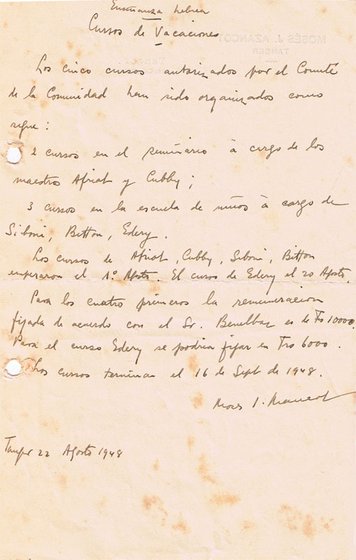 Enseñanza hebrea
Cursos de Vacaciones
Los cinco cursos autorizados por el Comité
de la Comunidad han sido organizados como
sigue:
2 cursos en el seminário à cargo de los
maestros Afriat y Cubby;
3 cursos en la escuela de niños à cargo de
Siboni, Bitton, Edery.
Los cursos de Afriat, Cubby, Siboni, Bitton
empezaron el 1º Agosto. El curso de Edery el 20 Agosto.
Para los cuatro primeros la remuneracion
fijada de acuerdo con el Sr. es de Frs 10000.
Para el curso Edery se podria fijar en Frs 6000.
Los cursos terminan el 16 de Sept de 1948.
Moses J.
Tanger 22 Agosto 1948
MOSES J. AZANCOT
TANGER